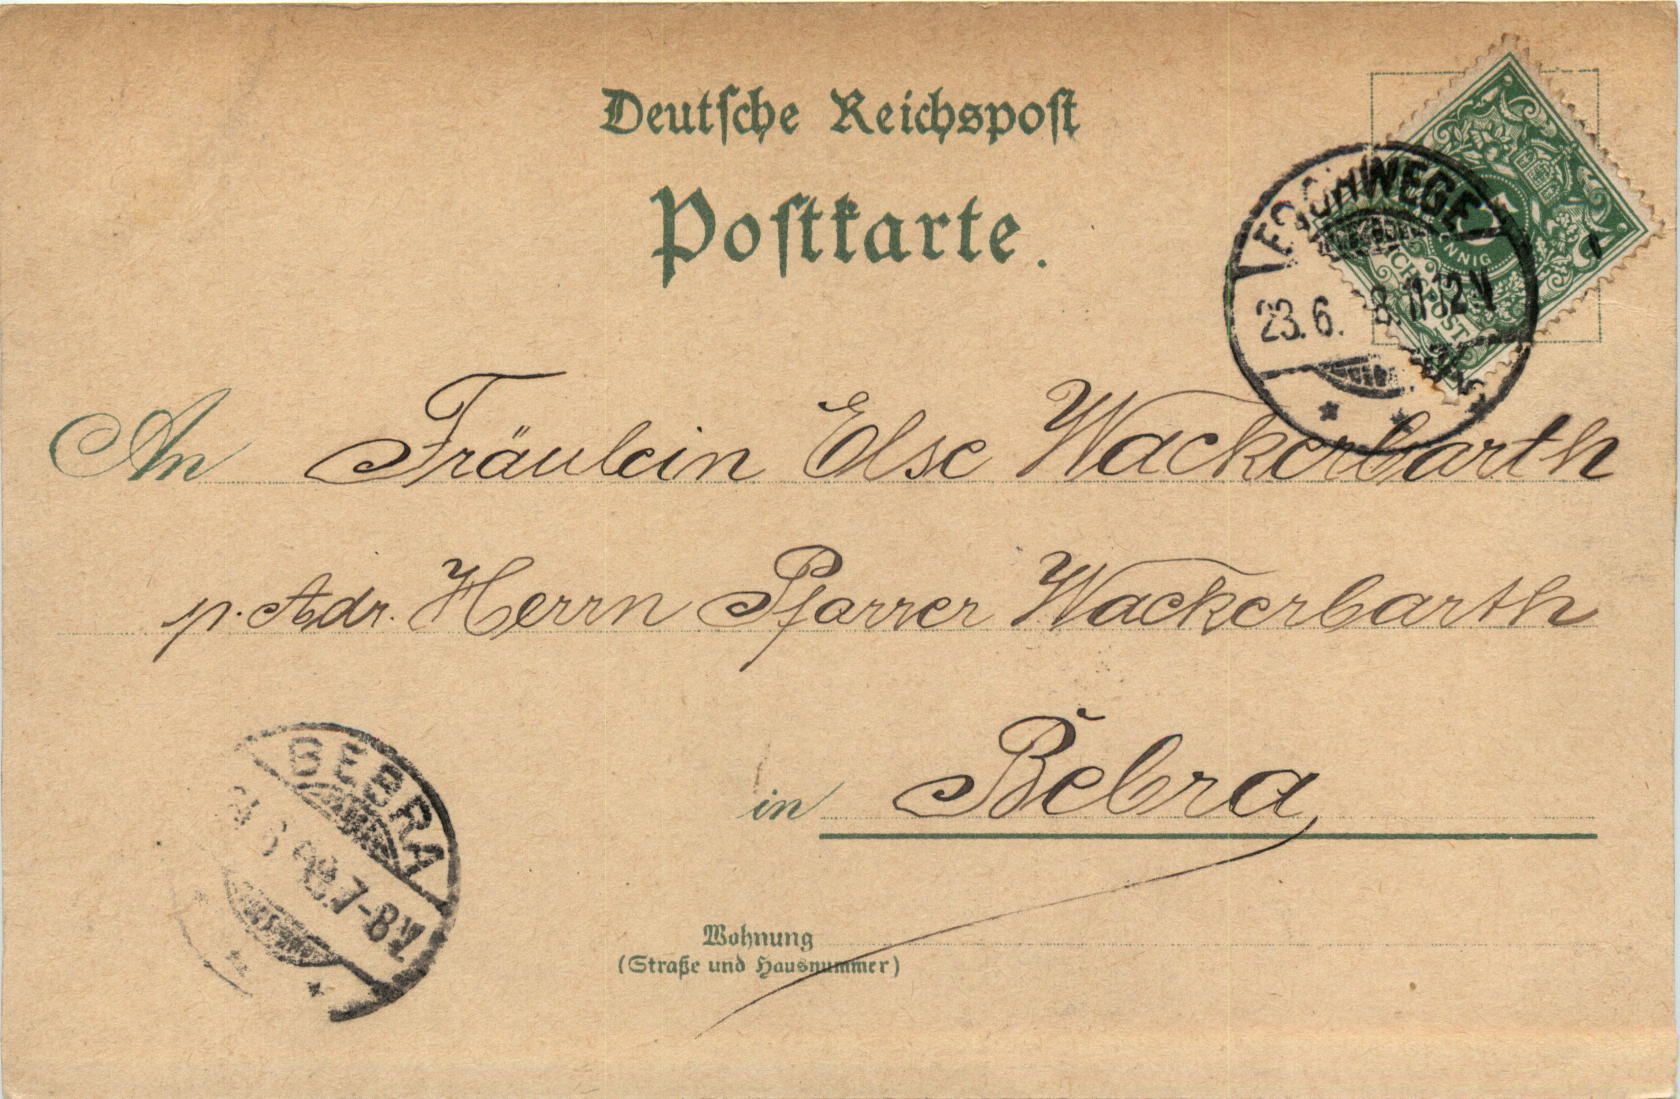 Deutsche Reichspost
Postkarte.
ESCHWEGE
23.6. 11-12V
PFENNIG
REICHSPOST
An Fräulein Else Wackerbarth
p. Adr. Herrn Pfarrer Wackerbarth
in Bebra
BEBRA
6 98.7-8V.
Wohnung
(Straße und Hausnummer)